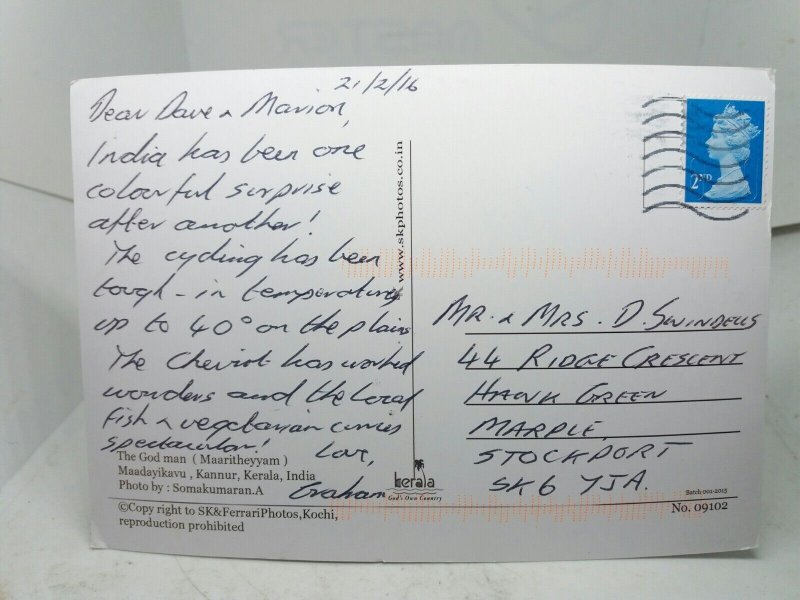 21/2/16
Dear Dave & Marion,
India has been one
colourful surprise
after another!
The cycling has been
tough - in temperatures
up to 40° on the plains
The Cheviot has worked
wonders and the local
fish & vegetarian curries
spectacular! Love,
Graham
The God man ( Maaritheyyam )
Maadayikavu , Kannur, Kerala, India
Photo by : Somakumaran.A
©Copy right to SK&FerrariPhotos,Kochi,
reproduction prohibited
www.skphotos.co.in
kerala
God's Own Country
2ND
MR. & MRS. D. SWINDELLS
44 RIDGE CRESCENT
HAWK GREEN
MARPLE,
STOCKPORT
SK6 7JA.
Batch 001-2015
No. 09102